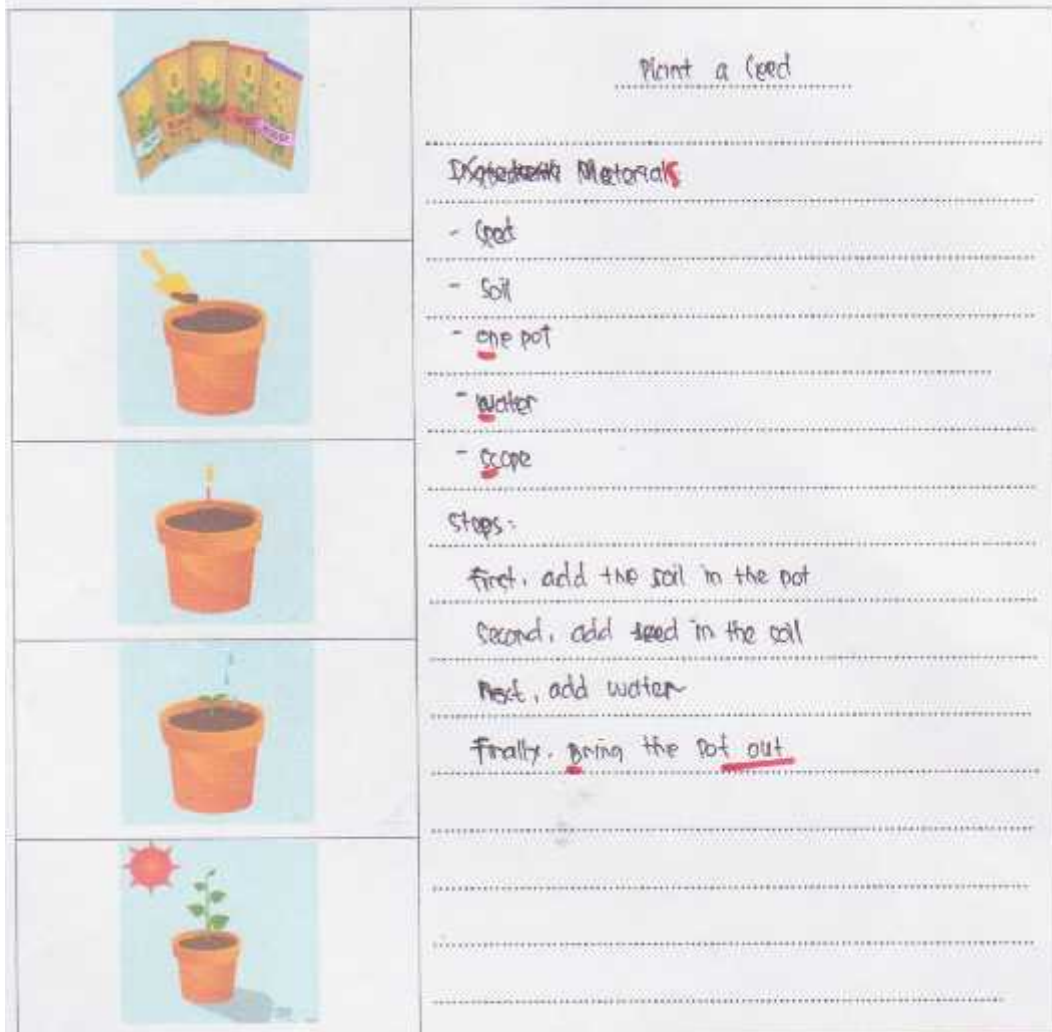 Plant a seed
Materials
- Seed
- Soil
- one pot
- water
- scope
Steps:
First, add the soil in the pot
Second, add seed in the soil
Next, add water
Finally, Bring the pot out